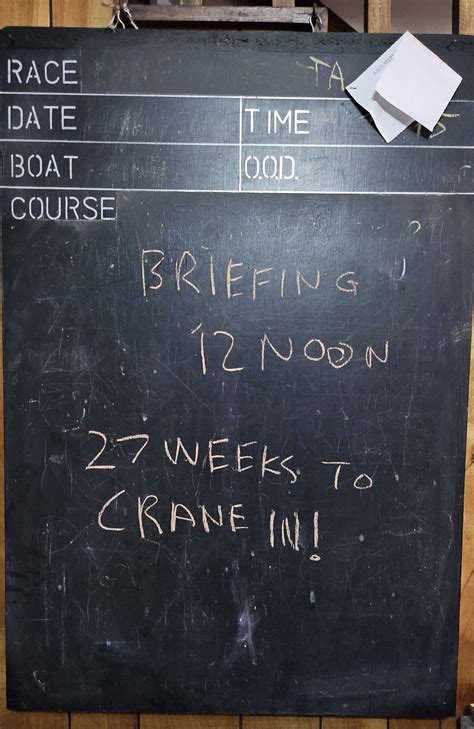 RACE TA
DATE TIME
BOAT O.O.D.
COURSE
BRIEFING
12 NOON
27 WEEKS TO
CRANE IN!